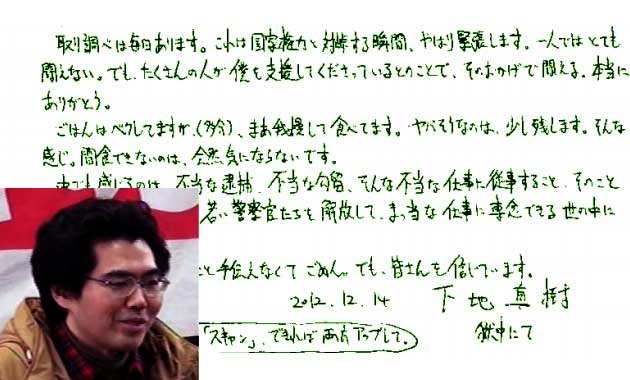 取り調べは毎日あります。これは国家権力と対峙する瞬間、やはり緊張します。一人ではとても
闘えない。でも、たくさんの人が僕を支援してくださっているとのことで、そのおかげで闘える。本当に
ありがとう。
ごはんはベクレてますが、(多分)、まあ我慢して食べてます。ヤバそうなのは、少し残します。そんな
感じ。間食できないのは、全然気にならないです。
中でも感じるのは、不当な逮捕、不当な勾留、そんな不当な仕事に従事すること、そのこと
若い警察官たちを解放して、まっ当な仕事に専念できる世の中に
こと手伝えなくてごめん。でも、皆さんを信じています。
2012.12.14 下地真樹
「スキャン」、できれば両方アップして。 獄中にて